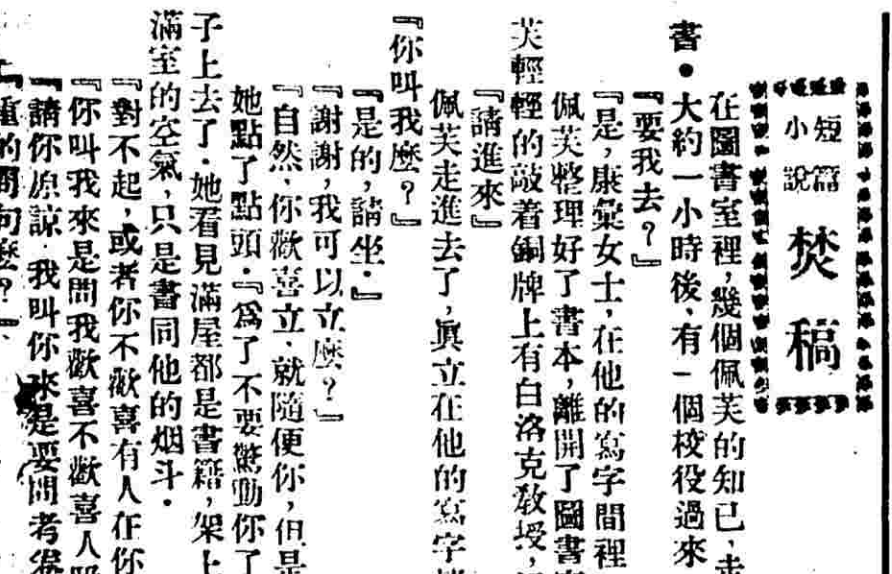 短篇小說
焚稿
在圖書室裡,幾個佩芙的知已,走
書.大約一小時後,有一個校役過來
『要我去?』
『是,康彙女士,在他的寫字間裡
佩芙整理好了書本,離開了圖書
芙輕輕的敲着銅牌上有白洛克敎授,
『請進來』
佩芙走進去了,眞立在他的寫字
『你叫我麼?』
『是的,請坐.』
『謝謝,我可以立麼?』
『自然,你歡喜立,就隨便你,但是
她點了點頭.『爲了不要驚動你了
子上去了.她看見滿屋都是書籍,架上
滿室的空氣,只是書同他的烟斗.
『對不起,或者你不歡喜有人在你
『你叫我來是問我歡喜不歡喜人
『請你原諒.我叫你來是要問考
的問句麼?』